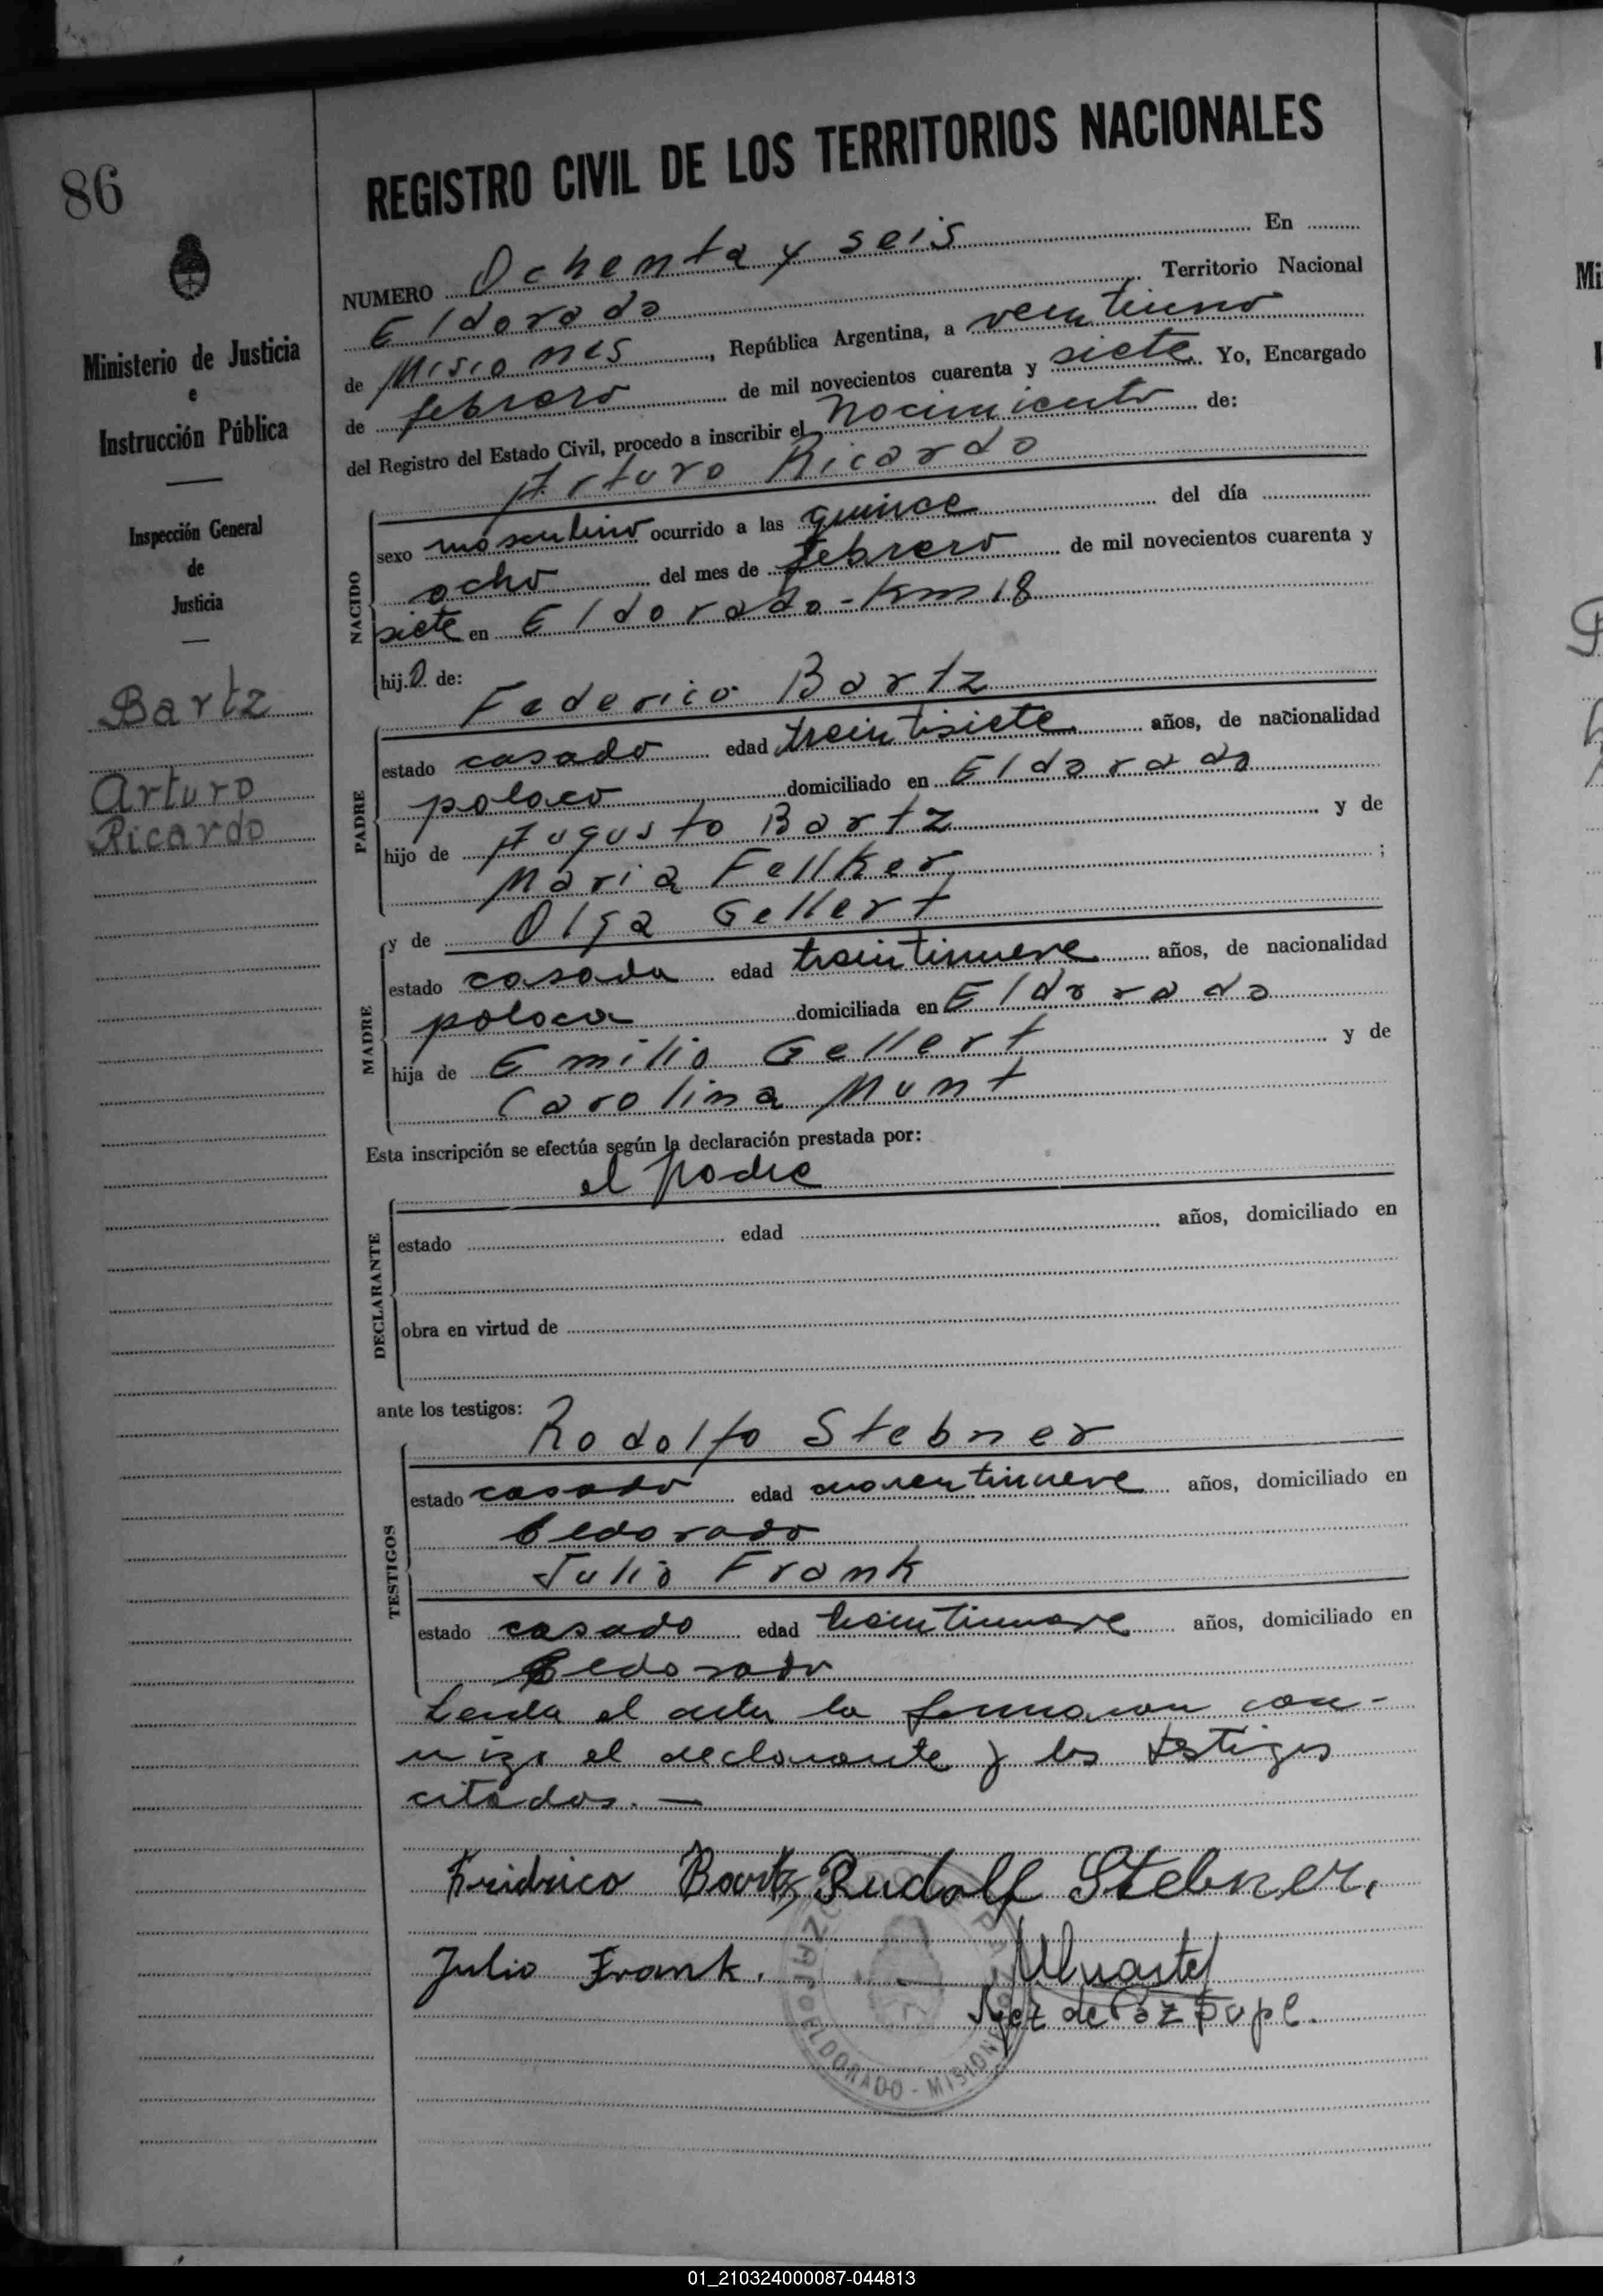 86
Ministerio de Justicia
e
Instrucción Pública
Inspección General
de
Justicia
Bartz
Arturo
Ricardo
REGISTRO CIVIL DE LOS TERRITORIOS NACIONALES
NUMERO Ochenta y seis En
Eldorado Territorio Nacional
de Misiones, República Argentina, a veintiuno
de febrero de mil novecientos cuarenta y siete Yo, Encargado
del Registro del Estado Civil, procedo a inscribir el nacimiento de:
Arturo Ricardo
NACIDO
sexo masculino ocurrido a las quince del día
ocho del mes de febrero de mil novecientos cuarenta y
siete en Eldorado - Km 18
hijo de:
Federico Bartz
PADRE
estado casado edad treintisiete años, de nacionalidad
polaco domiciliado en Eldorado
hijo de Augusto Bartz y de
Maria Fellker ;
MADRE
y de Olga Gellert
estado casada edad treintinueve años, de nacionalidad
polaca domiciliada en Eldorado
hija de Emilio Gellert y de
Carolina Munt
Esta inscripción se efectúa según la declaración prestada por:
el padre
DECLARANTE
estado edad años, domiciliado en
obra en virtud de
ante los testigos:
Rodolfo Stebner
TESTIGOS
estado casado edad cuarentinueve años, domiciliado en
Eldorado
Julio Frank
estado casado edad treintinueve años, domiciliado en
Eldorado
Leida el acta la firmaron con-
migo el declarante y los testigos
citados. —
Fridrico Bartz Rudolf Stebner.
Julio Frank.
Juez de Paz Supl.
JUZGADO DE PAZ
ELDORADO - MISIONES
01_210324000087-044813